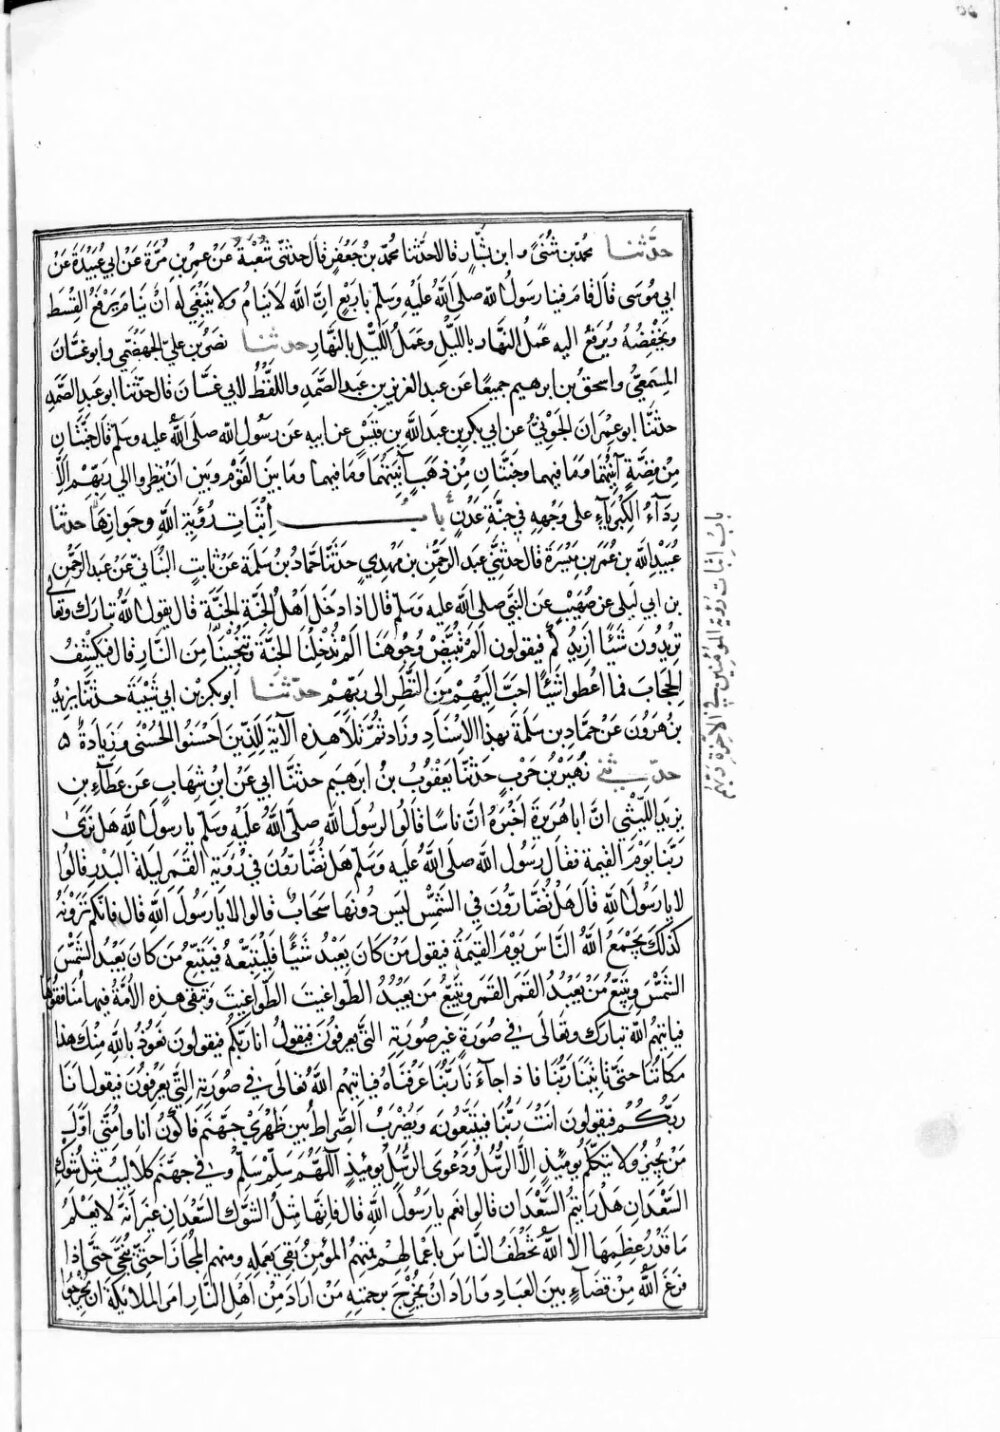 حدثنا محمد بن مثنى و ابن بشار قالا حدثنا محمد بن جعفر قال حدثنى شعبة عن عمرو بن مرة عن ابي عبيدة عن
ابي موسى قال قام فينا رسول الله صلى الله عليه وسلم باربع ان الله لا ينام ولا ينبغي له ان ينام يرفع القسط
ويخفضه ويرفع اليه عمل النهار بالليل وعمل الليل بالنهار حدثنا نصر بن علي الجهضمي وابو غسان
المسمعي واسحق بن ابرهيم جميعا عن عبد العزيز بن عبد الصمد واللفظ لابي غسان قال حدثنا ابو عبد الصمد
حدثنا ابو عمران الجوني عن ابي بكر بن عبد الله بن قيس عن ابيه عن رسول الله صلى الله عليه وسلم قال جنتان
من فضة آنيتهما وما فيهما وجنتان من ذهب آنيتهما وما فيهما وما بين القوم وبين ان ينظروا الى ربهم الا
رداء الكبرياء على وجهه في جنة عدن باب اثبات رؤية الله وجوازها حدثنا
عبيد الله بن عمر بن ميسرة قال حدثني عبد الرحمن بن مهدي حدثنا حماد بن سلمة عن ثابت البناني عن عبد الرحمن
بن ابي ليلى عن صهيب عن النبي صلى الله عليه وسلم قال اذا دخل اهل الجنة الجنة قال يقول الله تبارك وتعالى
تريدون شيئا ازيدكم فيقولون الم تبيض وجوهنا الم تدخلنا الجنة وتنجينا من النار قال فيكشف
الحجاب فما اعطوا شيئا احب اليهم من النظر الى ربهم حدثنا ابو بكر بن ابي شيبة حدثنا يزيد
بن هرون عن حماد بن سلمة بهذا الاسناد وزاد ثم تلا هذه الآية للذين احسنوا الحسنى وزيادة ٥
حدثني زهير بن حرب حدثنا يعقوب بن ابرهيم حدثنا ابي عن ابن شهاب عن عطاء بن
يزيد الليثي ان ابا هريرة اخبره ان ناسا قالوا لرسول الله صلى الله عليه وسلم يا رسول الله هل نرى
ربنا يوم القيمة فقال رسول الله صلى الله عليه وسلم هل تضارون في رؤية القمر ليلة البدر قالوا
لا يا رسول الله قال هل تضارون في الشمس ليس دونها سحاب قالوا لا يا رسول الله قال فانكم ترونه
كذلك يجمع الله الناس يوم القيمة فيقول من كان يعبد شيئا فليتبعه فيتبع من كان يعبد الشمس
الشمس ويتبع من يعبد القمر القمر ويتبع من يعبد الطواغيت الطواغيت وتبقى هذه الامة فيها منافقوها
فياتيهم الله تبارك وتعالى في صورة غير صورته التي يعرفون فيقول انا ربكم فيقولون نعوذ بالله منك هذا
مكاننا حتى ياتينا ربنا فاذا جاء نا ربنا عرفناه فياتيهم الله تعالى في صورته التي يعرفون فيقول انا
ربكم فيقولون انت ربنا فيتبعونه ويضرب الصراط بين ظهري جهنم فاكون انا وامتي اول
من يجيز ولا يتكلم يومئذ الا الرسل ودعوى الرسل يومئذ اللهم سلم سلم وفي جهنم كلاليب مثل شوك
السعدان هل رايتم السعدان قالوا نعم يا رسول الله قال فانها مثل الشوك السعدان غير انه لا يعلم
ما قدر عظمها الا الله تخطف الناس باعمالهم فمنهم المؤمن بقي بعمله ومنهم المجازا حتى ينجى حتى اذا
فرغ الله من قضاء بين العباد واراد ان يخرج برحمته من اراد من اهل النار امر الملائكة ان يخرجوا
باب اثبات رؤية المؤمنين في الاخرة ربهم